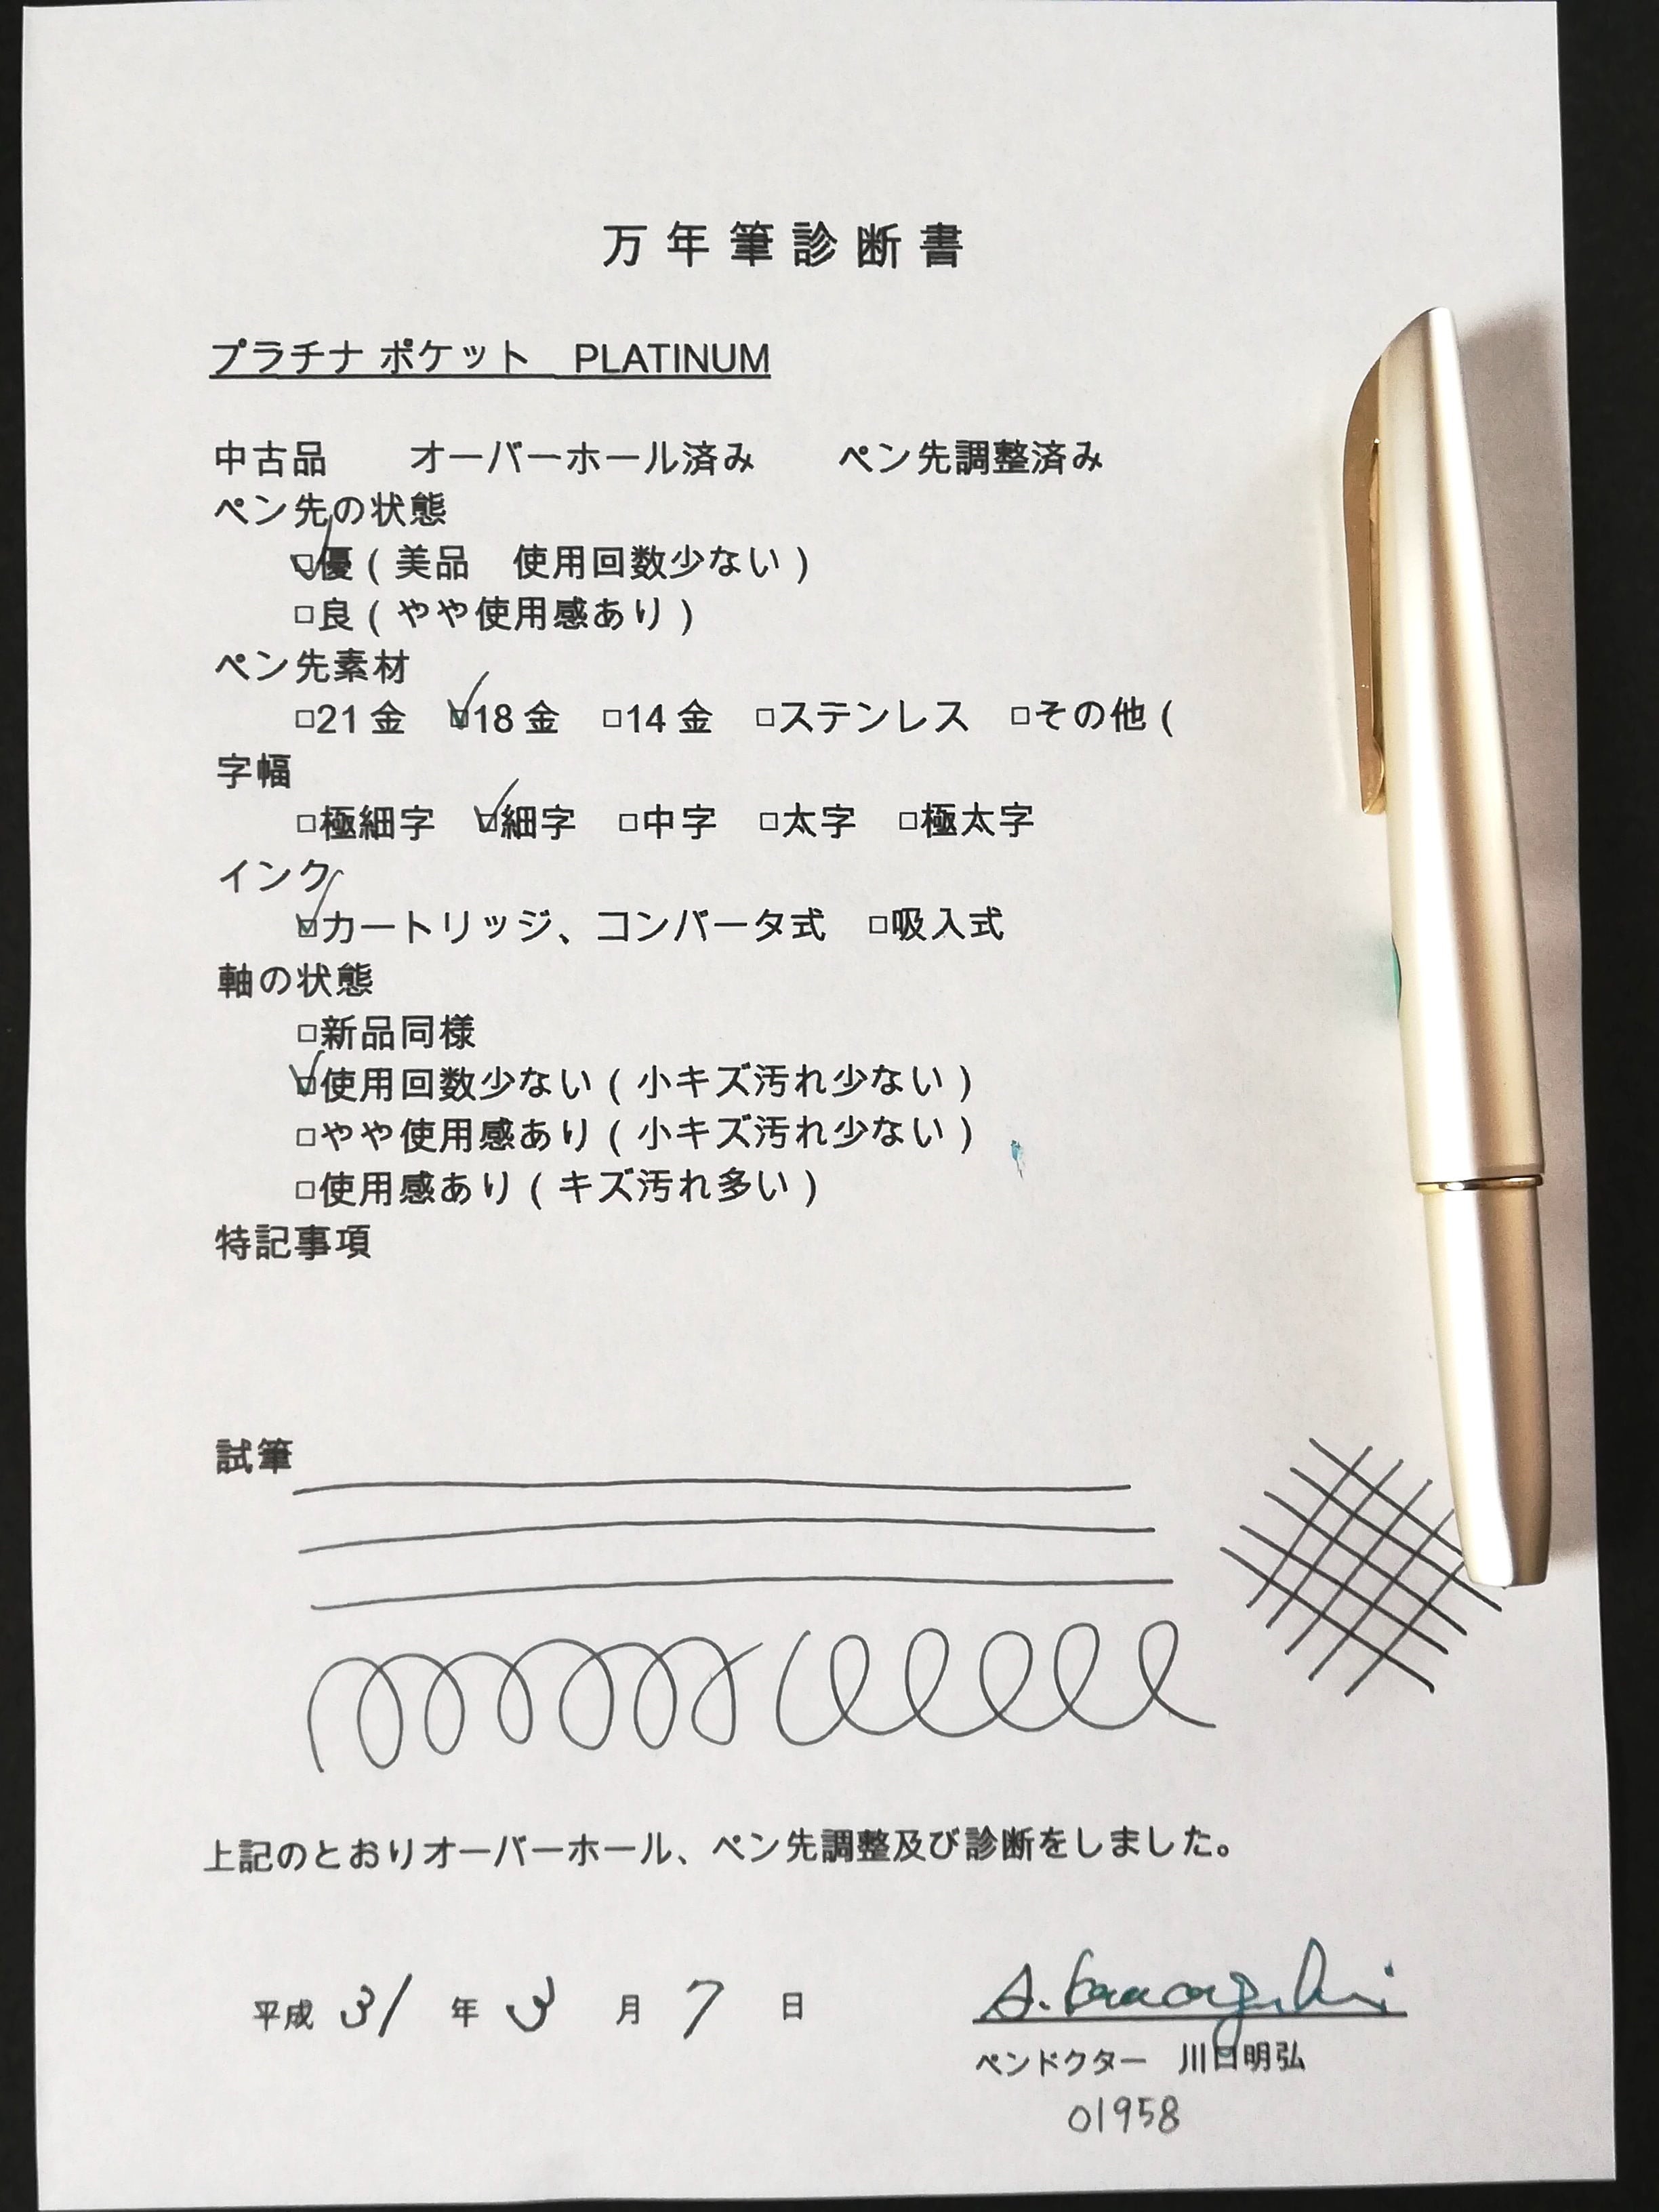 万年筆診断書
プラチナ ポケット PLATINUM
中古品 オーバーホール済み ペン先調整済み
ペン先の状態
☑優(美品 使用回数少ない)
□良(やや使用感あり)
ペン先素材
□21金 ☑18金 □14金 □ステンレス □その他(
字幅
□極細字 ☑細字 □中字 □太字 □極太字
インク
☑カートリッジ、コンバータ式 □吸入式
軸の状態
□新品同様
☑使用回数少ない(小キズ汚れ少ない)
□やや使用感あり(小キズ汚れ少ない)
□使用感あり(キズ汚れ多い)
特記事項
試筆
上記のとおりオーバーホール、ペン先調整及び診断をしました。
平成 31 年 3 月 7 日
A. Kawaguchi
ペンドクター 川口明弘
01958